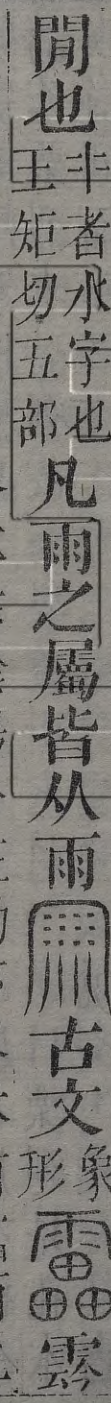 閒也𠕒者水字也王矩切五部凡雨之屬皆从雨𠕲古文象形靁霒